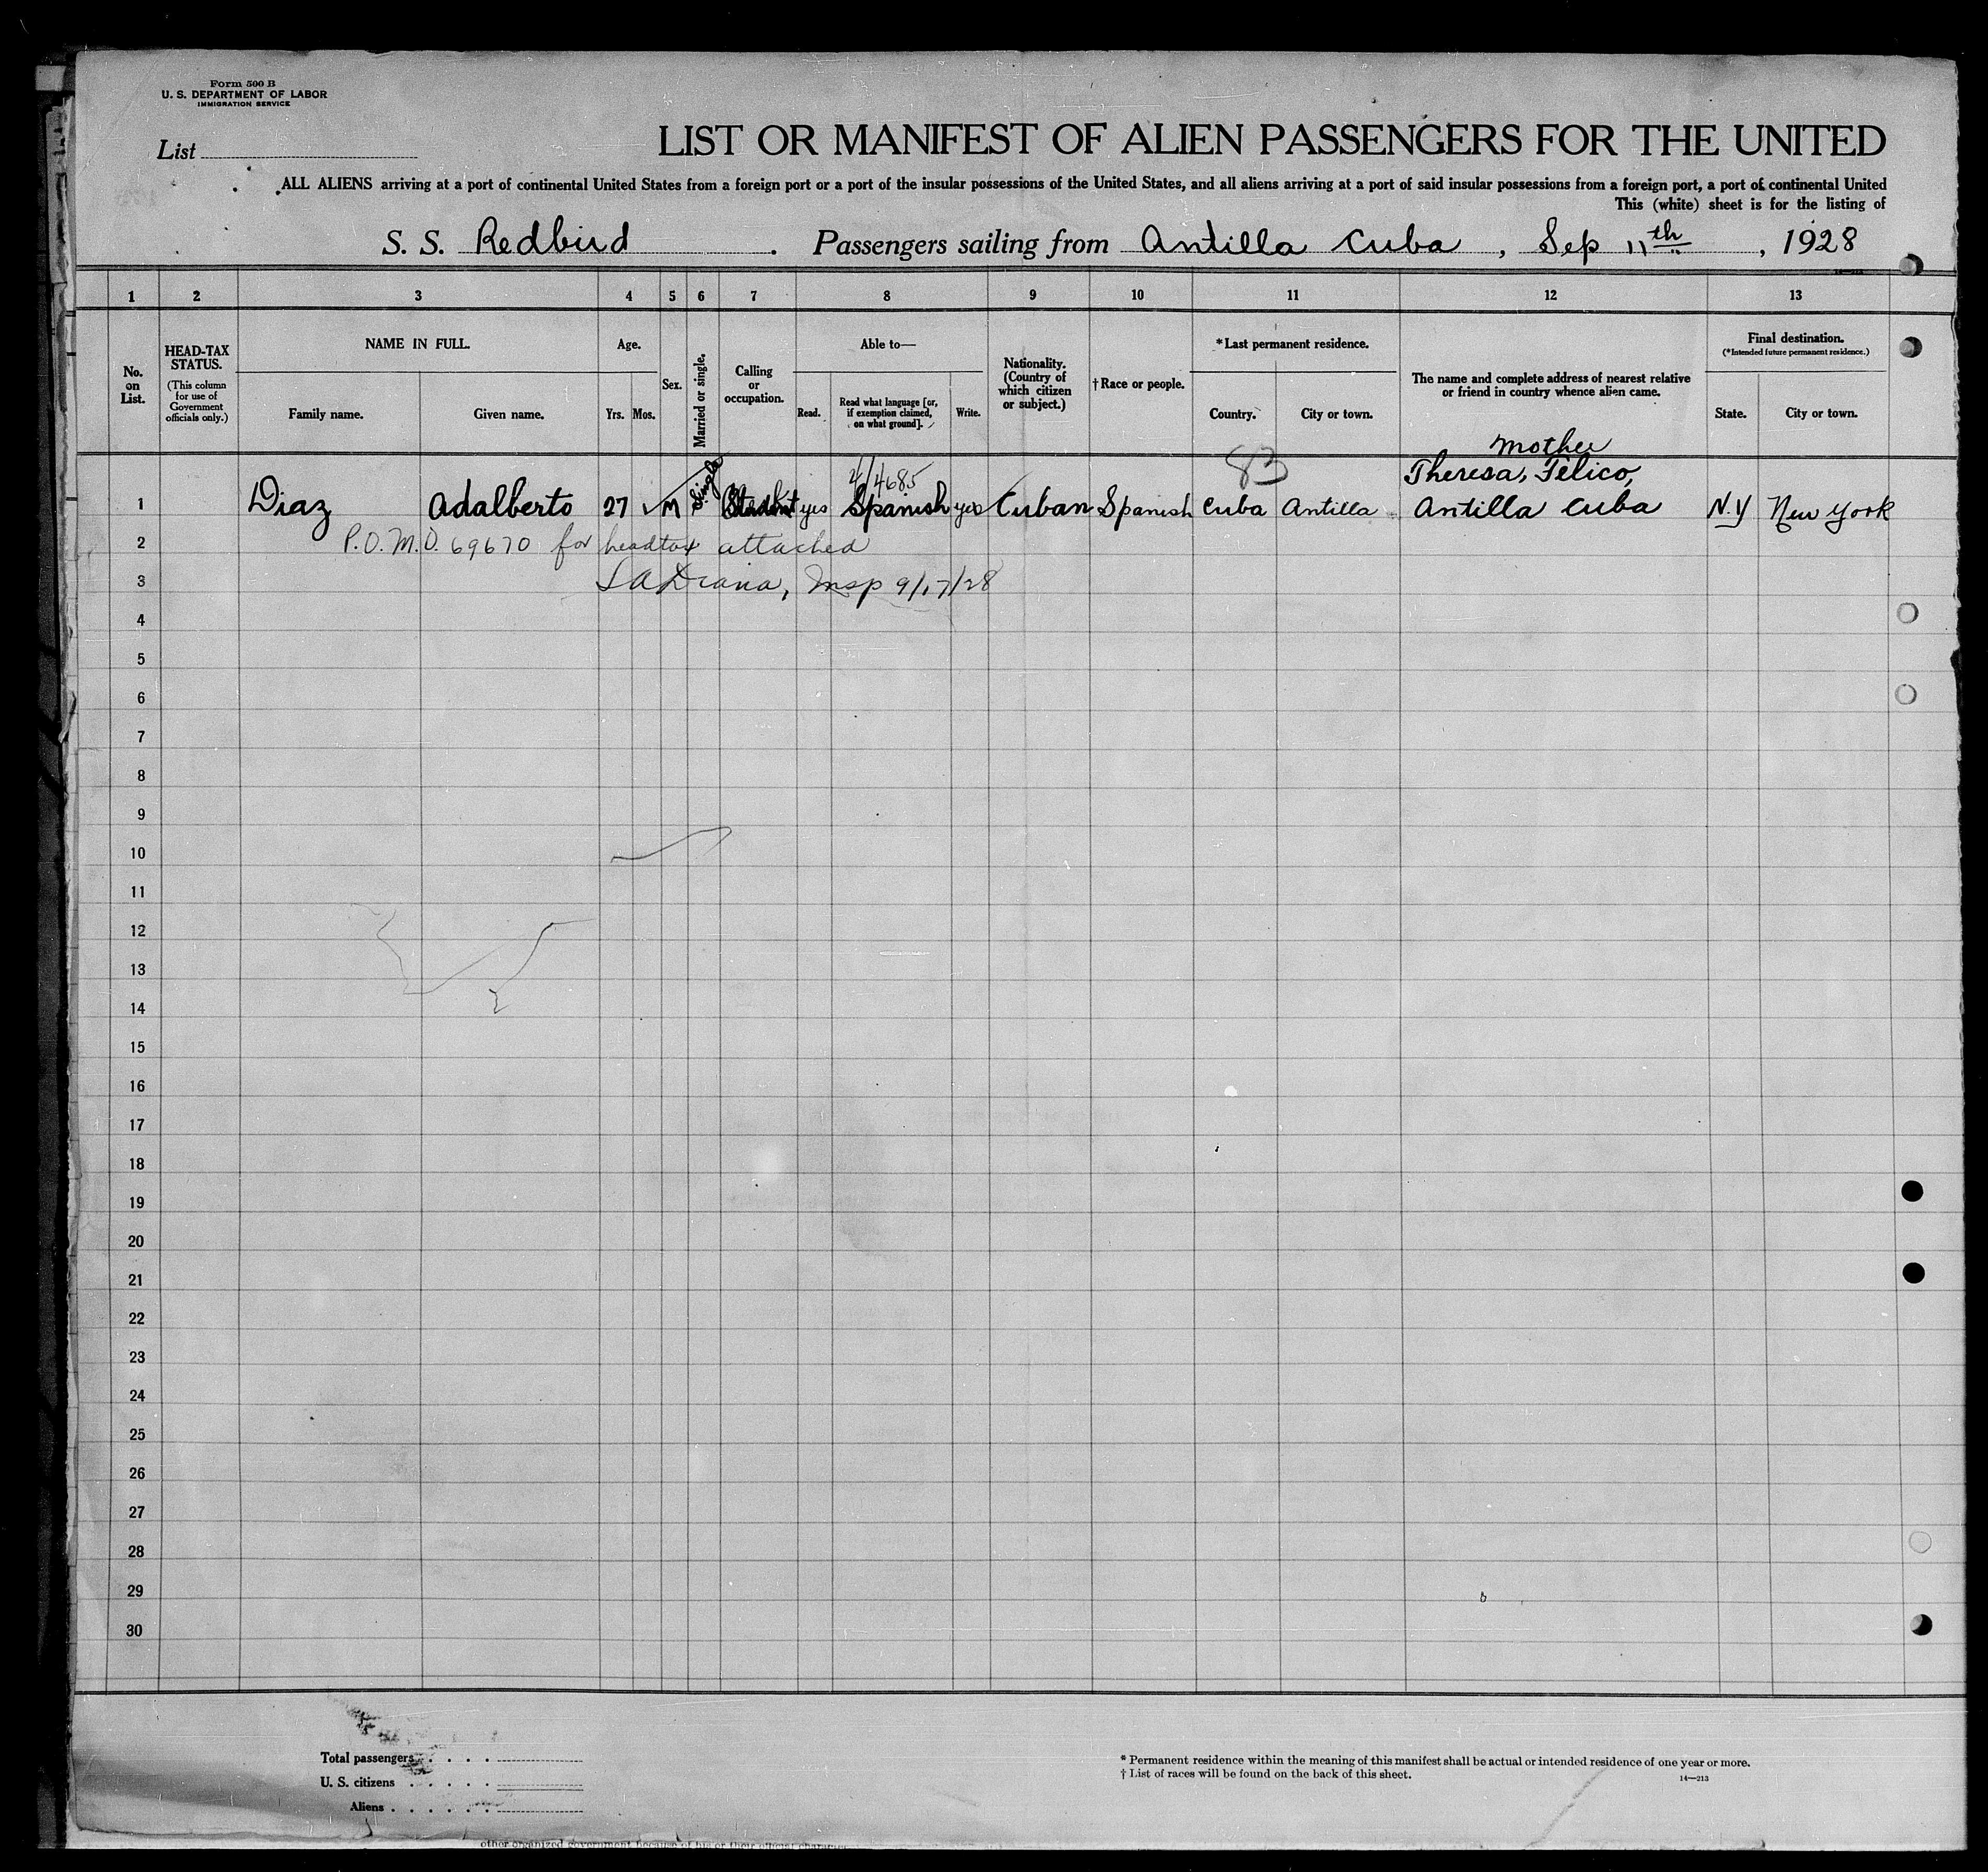 Form 500 B
U. S. DEPARTMENT OF LABOR
IMMIGRATION SERVICE
List
LIST OR MANIFEST OF ALIEN PASSENGERS FOR THE UNITED
ALL ALIENS arriving at a port of continental United States from a foreign port or a port of the insular possessions of the United States, and all aliens arriving at a port of said insular possessions from a foreign port, a port of continental United
This (white) sheet is for the listing of
S. S. Redbird. Passengers sailing from Antilla Cuba, Sep 11th, 1928
1 2 3 4 5 6 7 8 9 10 11 12 13
No. on List.
HEAD-TAX STATUS.
(This column for use of Government officials only.)
NAME IN FULL.
Family name.
Given name.
Age.
Yrs. Mos.
Sex.
Married or single.
Calling or occupation.
Able to—
Read.
Read what language [or, if exemption claimed, on what ground].
Write.
Nationality. (Country of which citizen or subject.)
†Race or people.
*Last permanent residence.
Country.
City or town.
The name and complete address of nearest relative or friend in country whence alien came.
Final destination.
(*Intended future permanent residence.)
State.
City or town.
mother
83
Theresa, Felico,
4/4685
1 Diaz Adalberto 27 M Single Student yes Spanish yes Cuban Spanish Cuba Antilla Antilla Cuba N.Y New York
2 P.O.M.O. 69670 for headtax attached
3 Insp 9/17/28
4
5
6
7
8
9
10
11
12
13
14
15
16
17
18
19
20
21
22
23
24
25
26
27
28
29
30
Total passengers
U. S. citizens
Aliens
* Permanent residence within the meaning of this manifest shall be actual or intended residence of one year or more.
† List of races will be found on the back of this sheet.
14—213